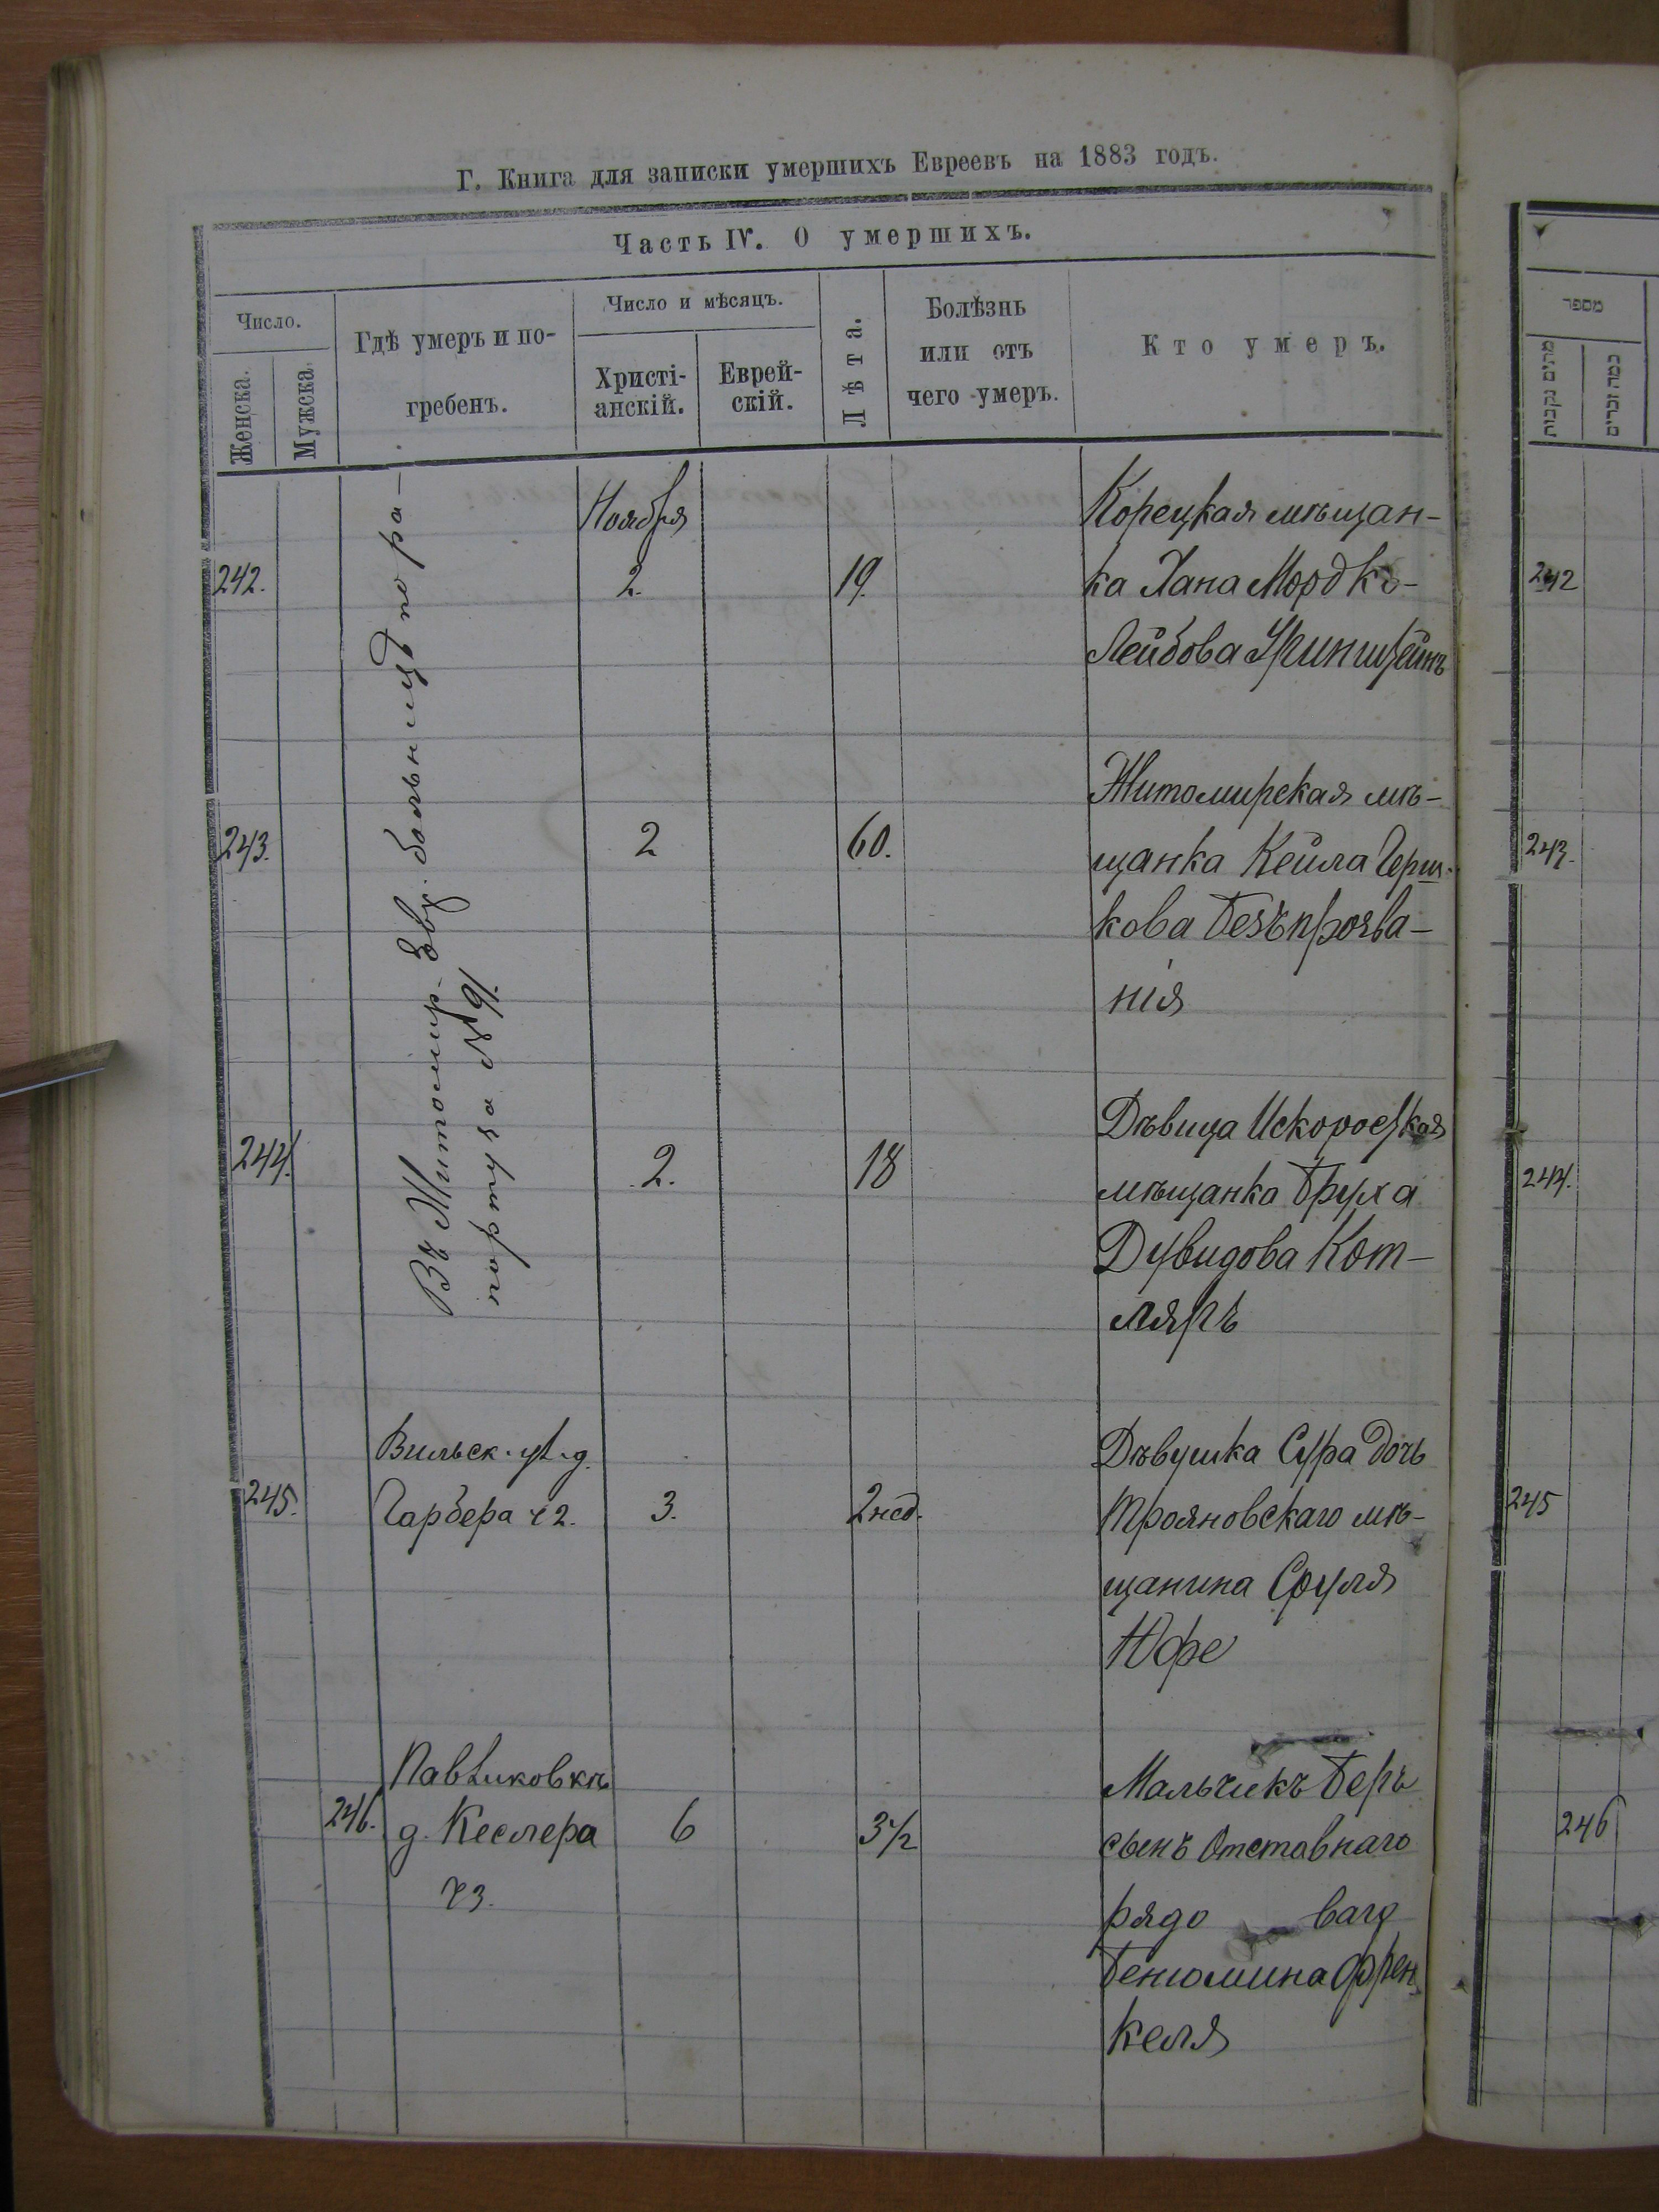 Г. Книга для записки умершихъ Евреевъ на 1883 годъ.
Часть IV. О умершихъ.
Число.
Женска.
Мужска.
Гдѣ умеръ и по-
гребенъ.
Число и мѣсяцъ.
Христі-
анскій.
Еврей-
скій.
Лѣта.
Болѣзнь
или отъ
чего умеръ.
Кто умеръ.
Въ Житомир. Евр. больницѣ по ра-
порту за № 91.
242.
Ноября
2.
19.
Корецкая мѣщан-
ка Хана Мордко-
Лейбова Гринштейнъ
243.
2
60.
Житомирская мѣ-
щанка Кейла Герш-
кова безъ прозва-
нія
244.
2.
18
Дѣвица Искоростская
мѣщанка Бруха
Дувидова Кот-
ляръ
245.
Вильск. ул. д.
Гарбера ч 2.
3.
2 нед.
Дѣвушка Сура дочь
Трояновскаго мѣ-
щанина Сруля
Юфе
246.
Павликовкѣ
д. Кеслера
ч 3.
6
3 1/2
Мальчикъ Беръ
сынъ Отставнаго
рядо ваго
Бенюмина Френ-
келя
מספר
מתים נקבות
כמה זכרים
242
243.
244.
245
246